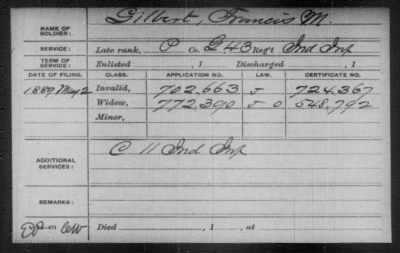 NAME OF SOLDIER: Gilbert, Francis M.
SERVICE: Late rank, P Co. G 43 Reg't Ind Inf
TERM OF SERVICE: Enlisted , 1 Discharged , 1
DATE OF FILING. CLASS. APPLICATION NO. LAW. CERTIFICATE NO.
1889 May 2 Invalid, 702,663 J 724,367
Widow, 772,390 J O 548,792
Minor,
ADDITIONAL SERVICES: C 11 Ind Inf
REMARKS:
Died , 1 , at